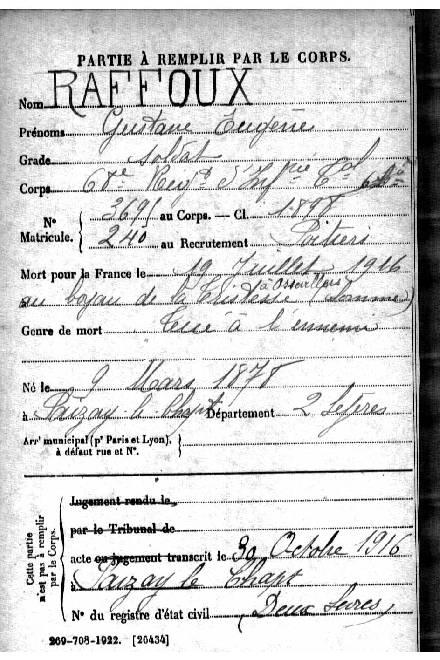 PARTIE À REMPLIR PAR LE CORPS.
Nom RAFFOUX
Prénoms Gustave Eugène
Grade soldat
Corps 68de Reg
N° Matricule. 369 au Corps. — Cl. 1898
240 au Recrutement Poitiers
Mort pour la France le 19 Juillet 1916
au boyau de la à (Somme)
Genre de mort Tué à l'ennemi
Né le 9 Mars 1878
à Paizay-le-Chapt Département 2 Sèvres
Arrt municipal (pr Paris et Lyon), à défaut rue et N°.
Cette partie n'est pas à remplir par le Corps.
Jugement rendu le
par le Tribunal de
acte ou jugement transcrit le 30 Octobre 1916
à Paizay le Chapt
N° du registre d'état civil Deux Sèvres
269-708-1922. [26434]